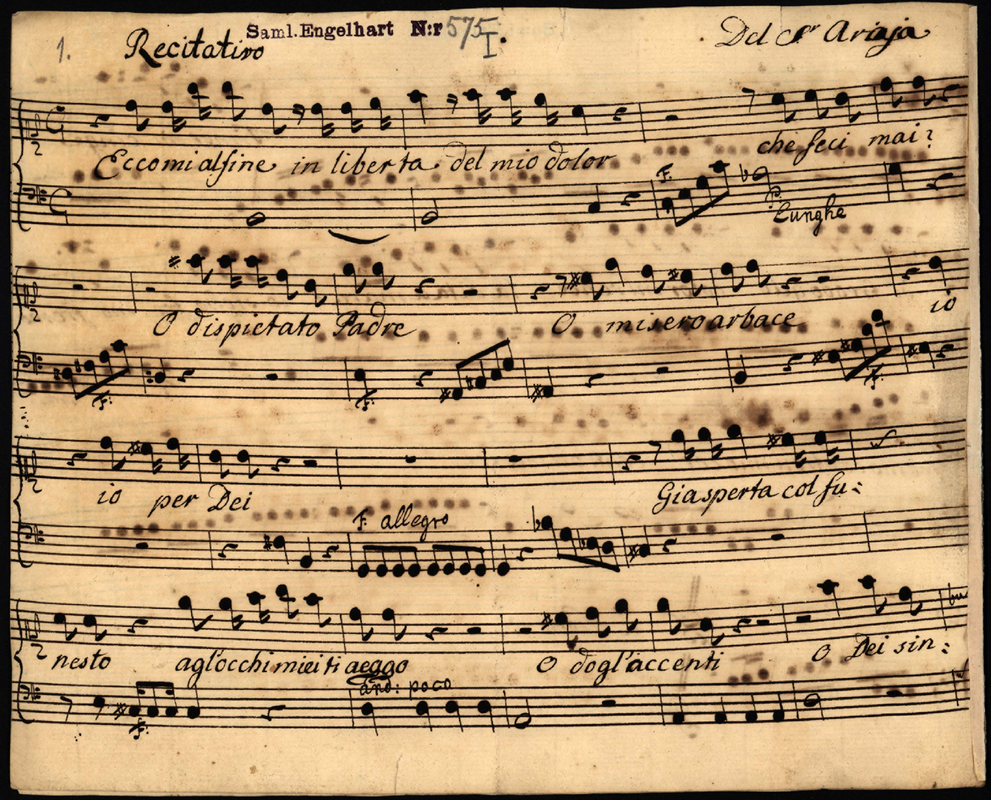 1. Recitativo Saml. Engelhart N:r 575 I. Del Sr Araja
Eccomi alfine in liberta del mio dolor che feci mai?
F. P. Lunghe
O dispietato Padre O misero arbace io
F: F:
io per Dei Giasperta col fu:
F. allegro
nesto agl'occhi miei ti aeggo O dogl'accenti O Dei sin:
F: and: poco